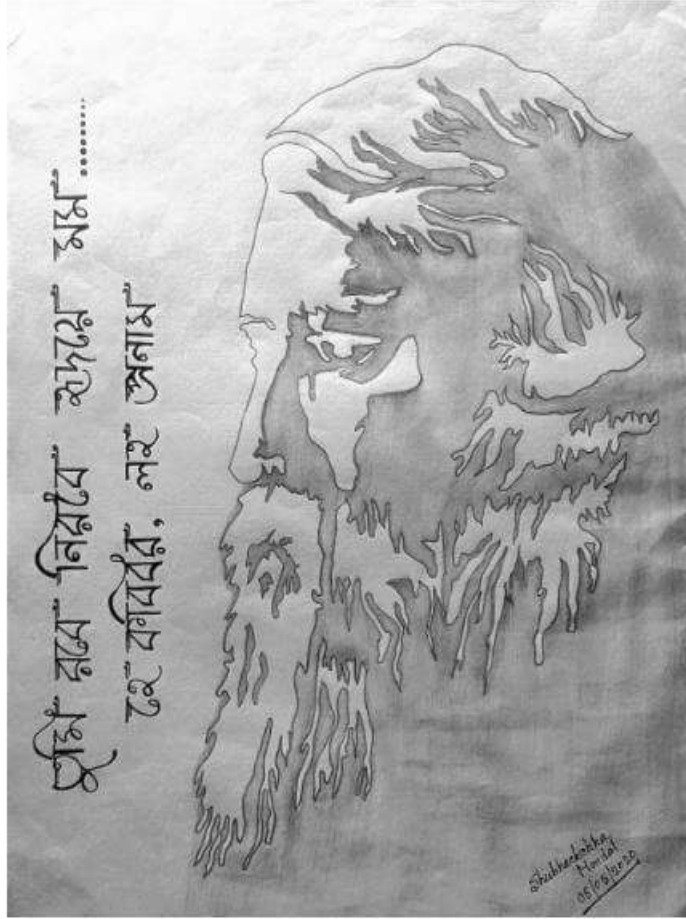 তুমি রবে নিরবে হৃদয়ে মম.........
হে কবিবর, লহ প্রনাম
Shubhechchha
Mondal
08/05/2020